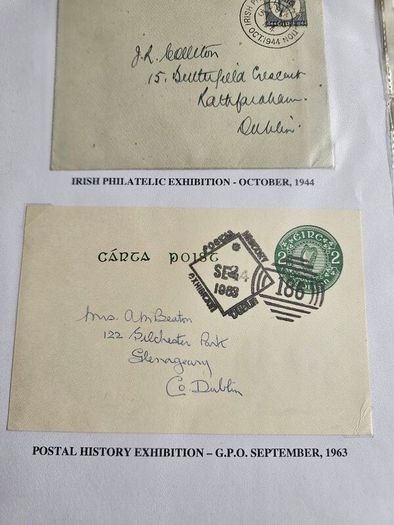 OCT.1944 NOV
J.R. Colleton
15, Butterfield Crescent
Rathfarnham.
Dublin.
IRISH PHILATELIC EXHIBITION - OCTOBER, 1944
CÁRTA POIST
POSTAL HISTORY
EXHIBITION DUBLIN
1963
186
2 ÉIRE 2
Mrs. A M Beaton
122 Silchester Park
Glenageary
Co Dublin
POSTAL HISTORY EXHIBITION – G.P.O. SEPTEMBER, 1963